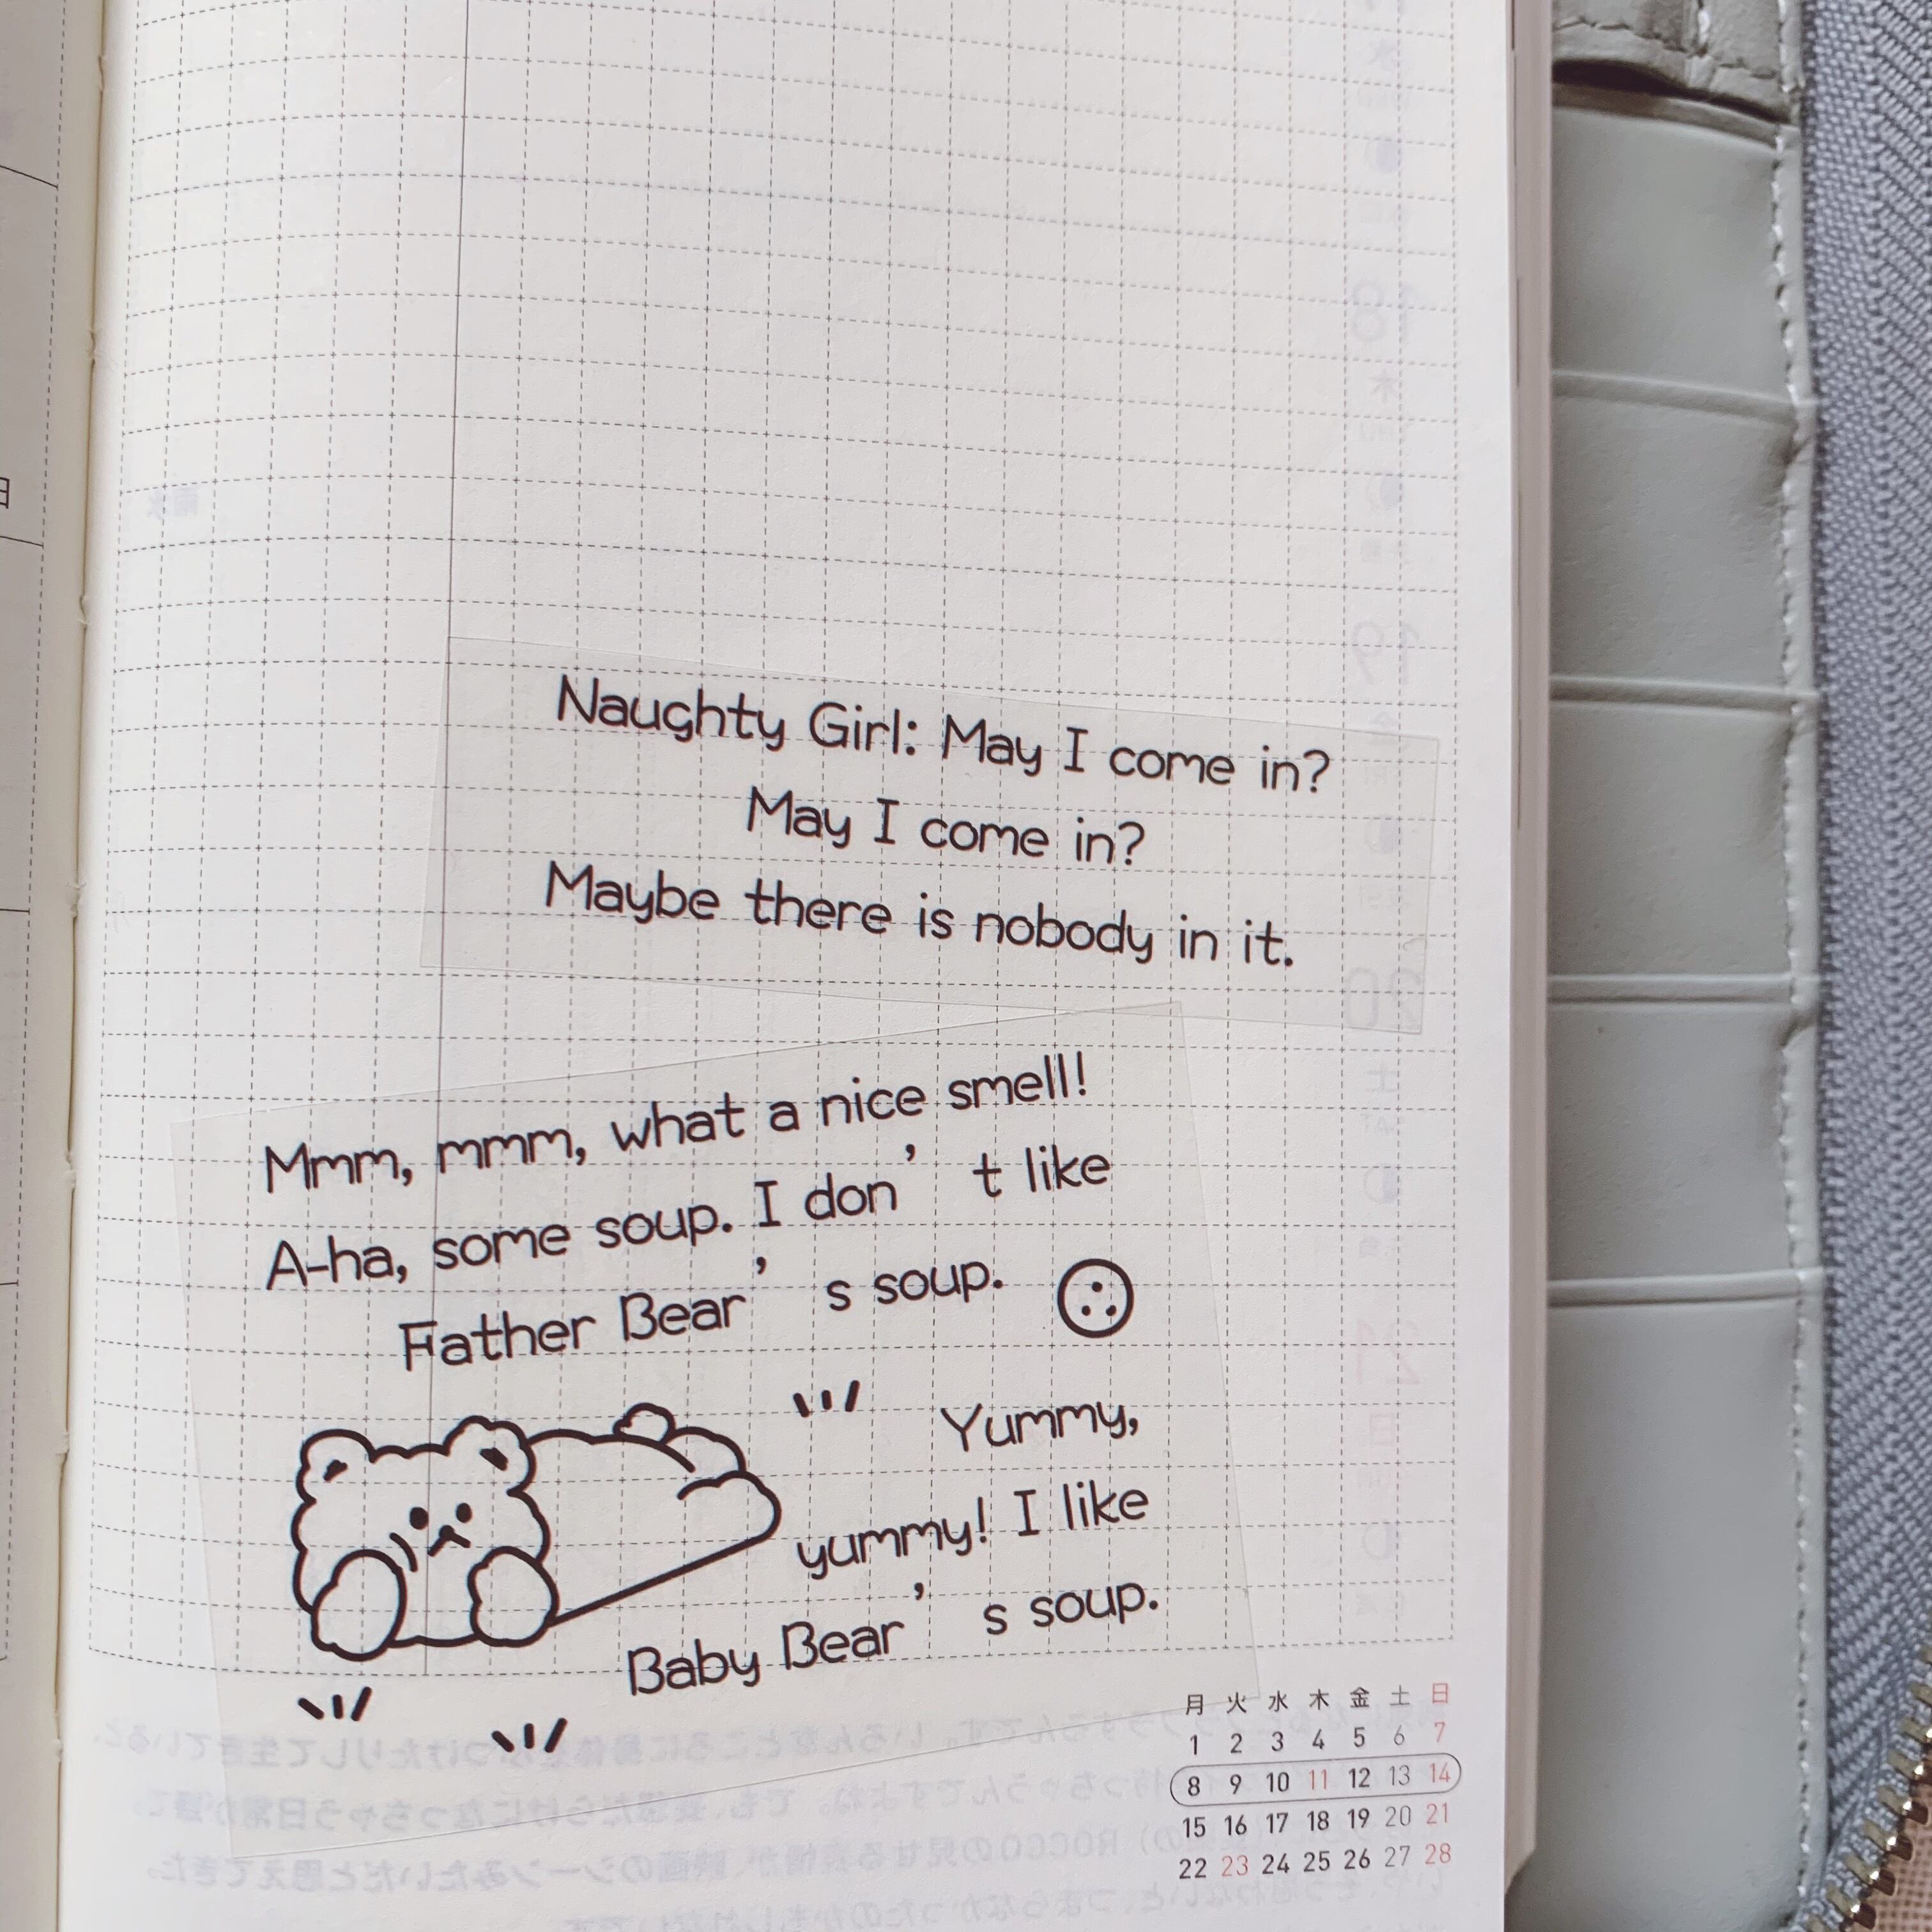 Naughty Girl: May I come in?
May I come in?
Maybe there is nobody in it.
Mmm, mmm, what a nice smell!
A-ha, some soup. I don’t like
Father Bear’s soup.
Yummy,
yummy! I like
Baby Bear’s soup.
月 火 水 木 金 土 日
1 2 3 4 5 6 7
8 9 10 11 12 13 14
15 16 17 18 19 20 21
22 23 24 25 26 27 28
日